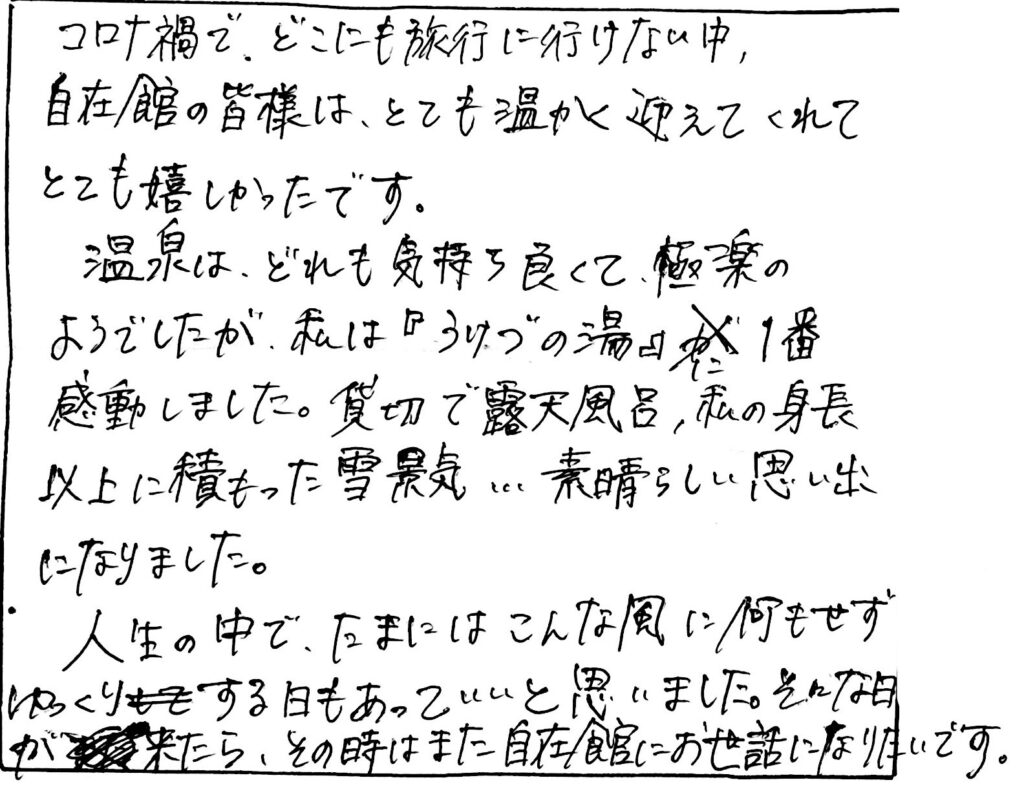 コロナ禍で、どこにも旅行に行けない中,
自在館の皆様は、とても温かく迎えてくれて
とても嬉しかったです。
温泉は、どれも気持ち良くて、極楽の
ようでしたが、私は『うけづの湯』に1番
感動しました。貸切で露天風呂,私の身長
以上に積もった雪景気…素晴らしい思い出
になりました。
人生の中で、たまにはこんな風に何もせず
ゆっくりする日もあっていいと思いました。そんな日
が来たら、その時はまた自在館にお世話になりたいです。